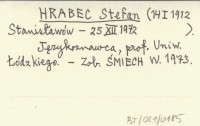 HRABEC Stefan (14 I 1912
Stanisławów - 25 XII 1972 ).
Językoznawca, prof. Uniw.
Łódzkiego. - Zob. ŚMIECH W. 1973.